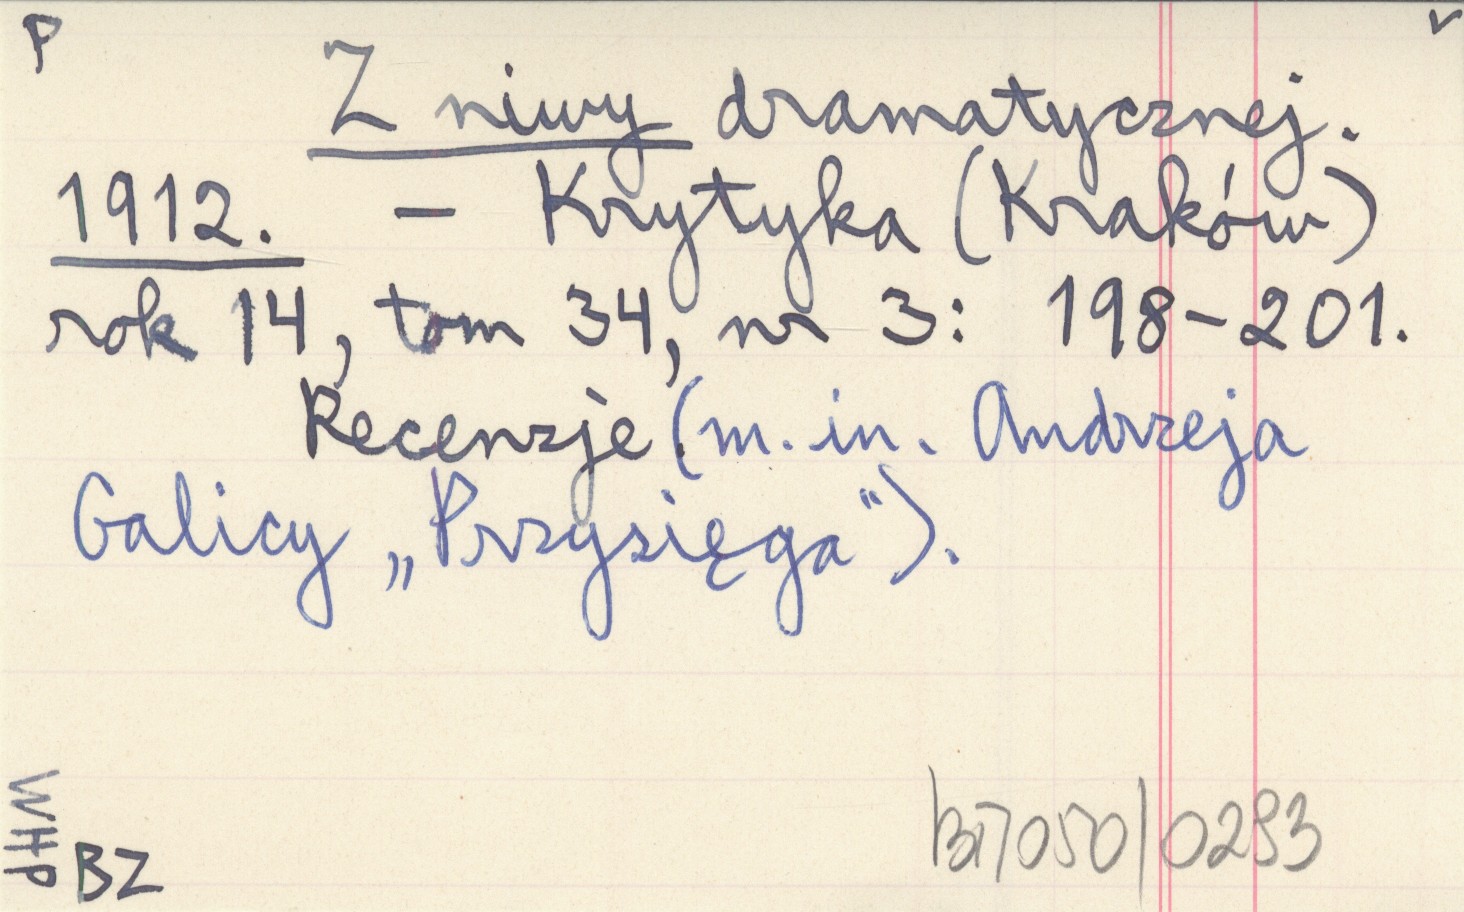 P
v
Z niwy dramatycznej.
1912. – Krytyka (Kraków)
rok 14, tom 34, nr 3: 198–201.
Recenzje (m. in. Andrzeja
Galicy „Przysięga“).
WHP
BZ
0293